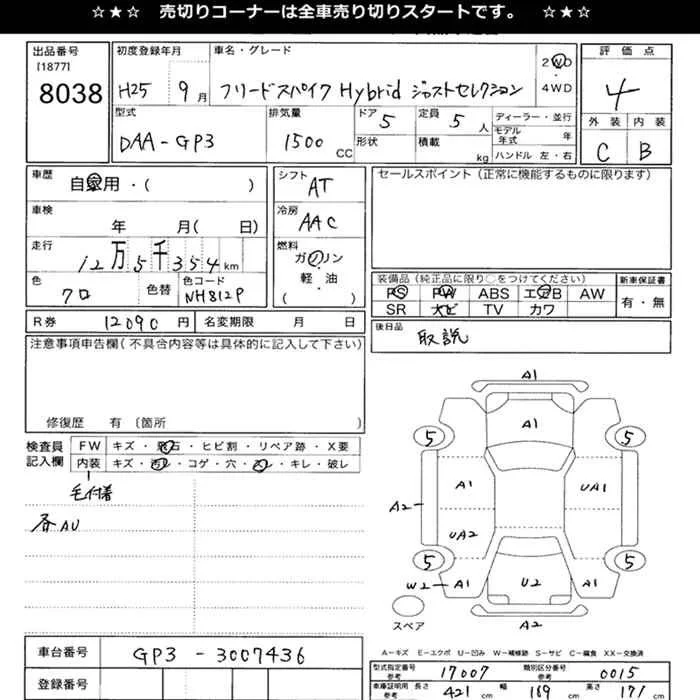 ☆★☆ 売切りコーナーは全車売り切りスタートです。 ☆★☆
出品番号
[1877]
8038
初度登録年月
H25 9月
車名・グレード
フリードスパイク Hybrid ジャストセレクション
2WD
4WD
評価点
4
外装 内装
C B
型式
DAA-GP3
排気量
1500 CC
ドア 5
形状
定員 5 人
積載 kg
ディーラー・並行
モデル年式 年
ハンドル 左・右
車歴
自家用・( )
車検
年 月( 日)
走行
12万5千354km
色
クロ
色替
色コード
NH812P
シフト
AT
冷房
AAC
燃料
ガソリン
軽・油
( )
セールスポイント(正常に機能するものに限ります)
装備品(純正品に限り○をつけてください)
PS PW ABS エアB AW
SR ナビ TV カワ
新車保証書
有・無
R券 12090円 名変期限 月 日
後日品
取説
注意事項申告欄(不具合内容等は具体的に記入して下さい)
修復歴 有〔箇所 〕
検査員
記入欄
FW キズ・飛石・ヒビ割・リペア跡・X要
内装 キズ・汚レ・コゲ・穴・スレ・キレ・破レ
毛付着
各AU
A1
A1
5
5
A1
UA1
A2
UA2
5
5
W2
A1
U2
A1
スペア
A2
A―キズ E―エクボ U―凹み W―補修跡 S―サビ C―腐食 XX―交換済
車台番号
GP3-3007436
登録番号
型式指定番号
参考
17007
類別区分番号
参考
0015
車庫証明用
参考
長さ 421 cm 幅 169 cm 高さ 171 cm